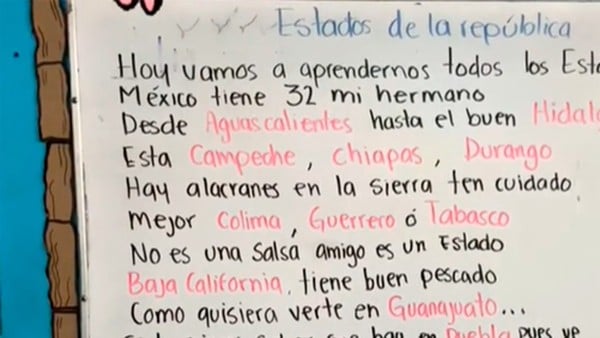 Estados de la república
Hoy vamos a aprendernos todos los
México tiene 32 mi hermano
Desde Aguascalientes hasta el buen
Esta Campeche, Chiapas, Durango
Hay alacranes en la sierra ten cuidado
Mejor Colima, Guerrero ó Tabasco
No es una Salsa amigo es un Estado
Baja California, tiene buen pescado
Como quisiera verte en Guanajuato...
en Puebla pues ve